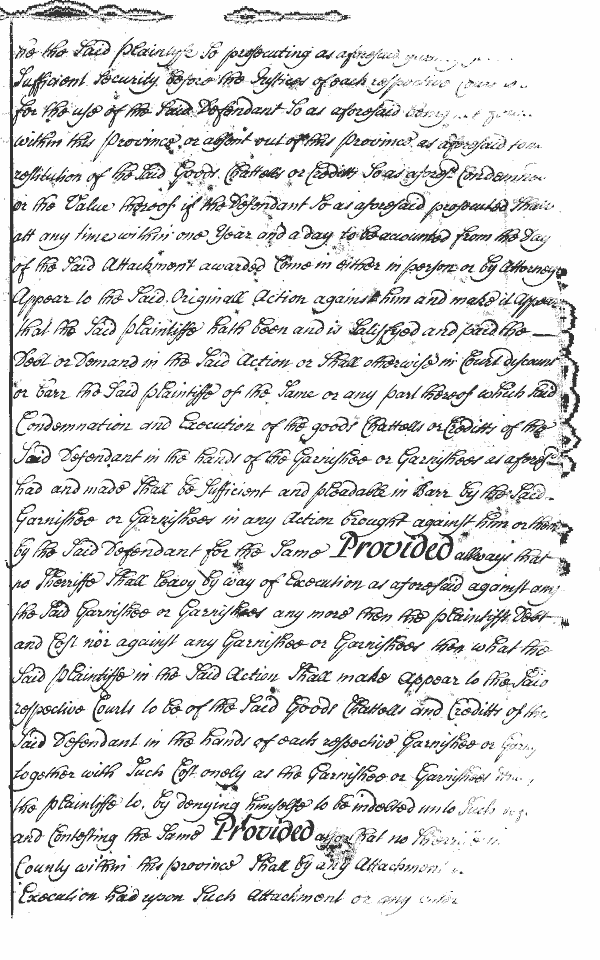 the Said Plaintiffe So prosecuting as aforesaid
Sufficient Security before the Justices of each respective
for the use of the Said Defendant So as aforesaid being
within this Province or absent out of this Province as aforesaid
restitution of the Said Goods Chattells or Creditts So as afores.d Condemned
or the Value thereof if the Defendant So as aforesaid prosecuted Shall
att any time within one Year and a day to be accounted from the Day
of the Said Attachment awarded Come in either in person or by Attorney
Appear to the Said Originall Action against him and make it Appear
that the Said Plaintiffe hath been and is Satisfyed and paid the
Debt or Demand in the Said Action or Shall otherwise in Court discount
or barr the Said Plaintiffe of the Same or any part thereof which Said
Condemnation and Execution of the goods Chattells or Creditts of the
Said Defendant in the hands of the Garnishee or Garnishees as afores.d
had and made Shall be Sufficient and pleadable in Barr by the Said
Garnishee or Garnishees in any Action brought against him or them
by the Said Defendant for the Same Provided allways that
no Sherriffe Shall leavy by way of Execution as aforesaid against any
the Said Garnishee or Garnishees any more then the plaintiffs Debt
and Cost nor against any Garnishee or Garnishees then what the
Said Plaintiffe in the Said Action Shall make Appear to the Said
respective Courts to be of the Said Goods Chattells and Creditts of the
Said Defendant in the hands of each respective Garnishee or
together with Such Cost onely as the Garnishee or Garnishees
the plaintiffe to, by denying himselfe to be indebted unto Such
and Contesting the Same Provided also that no Sherriffe
County within this Province Shall by any Attachment
Execution had upon Such Attachment or any other